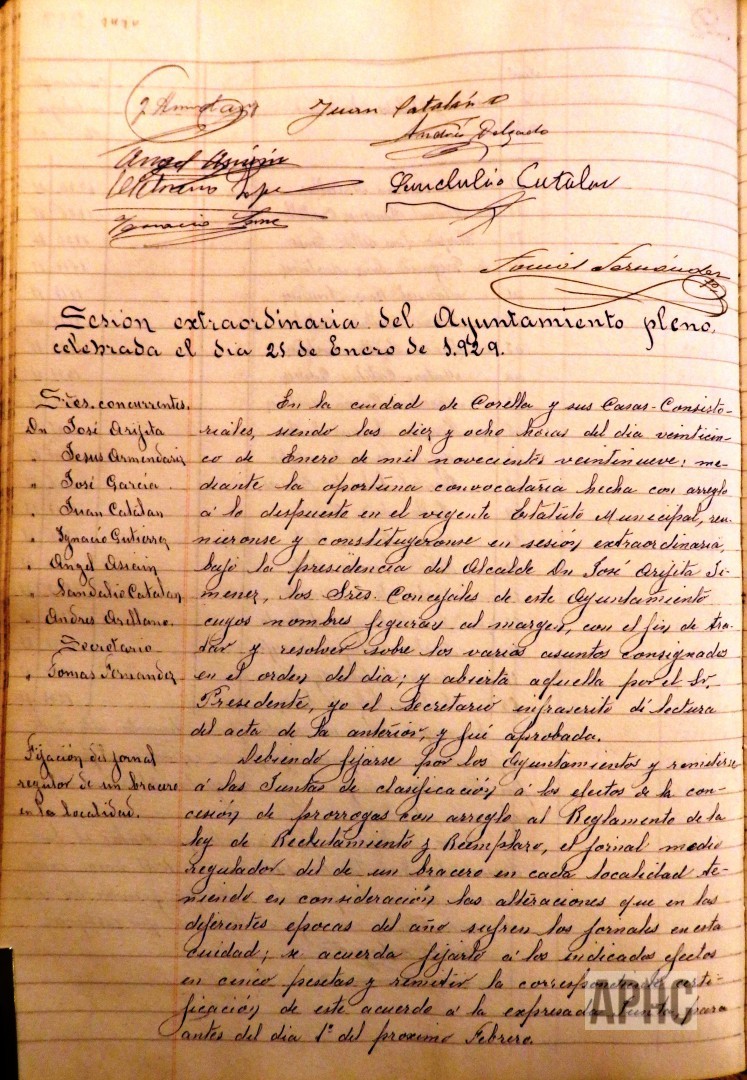 J. Armendariz
Juan Catalán
Andrés Delgado
Angel Asiain
Sandalio Catalan
Ignacio
Tomás Fernández
Sesión extraordinaria del Ayuntamiento pleno,
celebrada el dia 25 de Enero de 1.929.
Sres. concurrentes.
Dn José Arijita
" Jesus Armendariz
" José García
" Juan Catalan
" Ignacio Gutierrez
" Angel Asiain
" Sandalio Catalan
" Andres Arellano.
Secretario
" Tomas Fernandez
En la ciudad de Corella y sus Casas-Consisto-
riales, siendo las diez y ocho horas del dia veinticin-
co de Enero de mil novecientos veintinueve; me-
diante la oportuna convocataria hecha con arreglo
á lo dispuesto en el vigente Estatuto Municipal, reu-
nieronse y constituyeronse en sesion extraordinaria,
bajo la presidencia del Alcalde Dn José Arijita Ji-
menez, los Sres. Concejales de este Ayuntamiento
cuyos nombres figuran al margen, con el fin de tra-
tar y resolver sobre los varios asuntos consignados
en el orden del dia; y abierta aquella por el Sr.
Presidente, yo el Secretario infrascrito dí lectura
del acta de la anterior, y fué aprobada.
Fijación del jornal
regulor de un bracero
en la localidad.
Debiendo fijarse por los Ayuntamientos y remitirse
á las Juntas de clasificación á los efectos de la con-
cesión de prorrogas con arreglo al Reglamento de la
ley de Reclutamiento y Reemplazo, el jornal medio
regulador del de un bracero en cada localidad te-
niendo en consideración las alteraciones que en las
diferentes epocas del año sufren los jornales en esta
ciudad; se acuerda fijarlo á los indicados efectos
en cinco pesetas y remitir la correspondiente certi-
ficación de este acuerdo á la expresada Junta, para
antes del dia 1º del proximo Febrero.
APHC